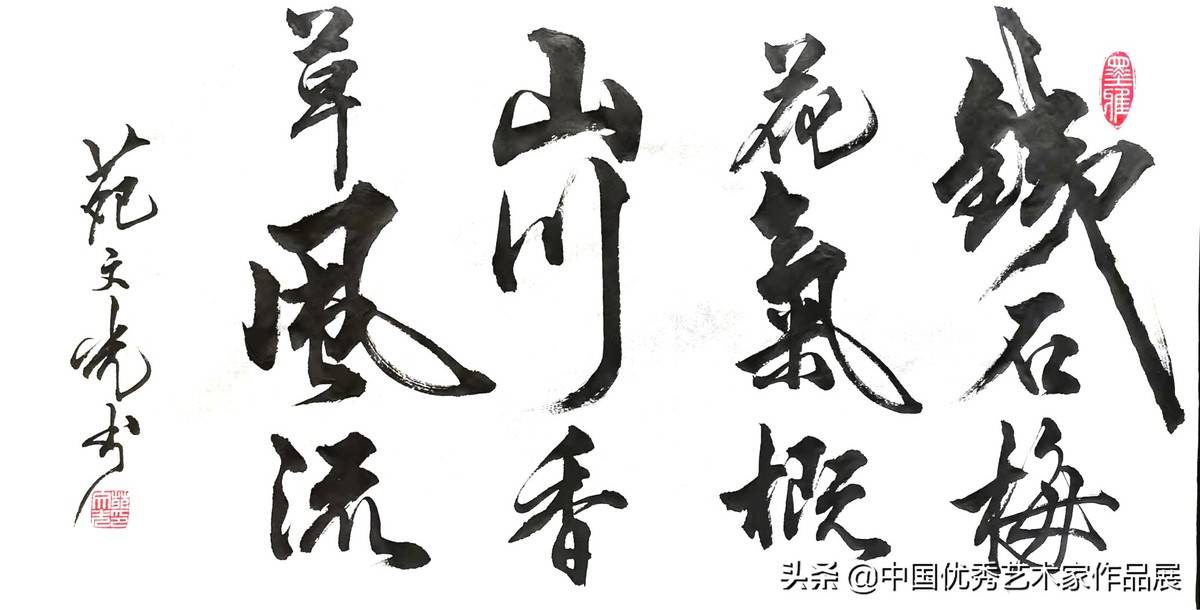 墨雅
鐵石梅
花氣概
山川香
草風流
苑文光书
头条 @中国优秀艺术家作品展